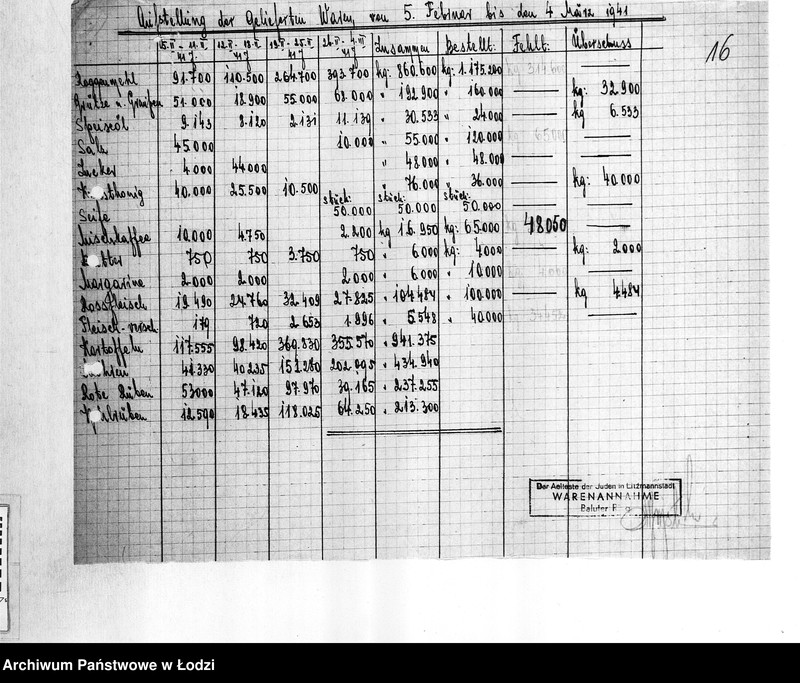 Aufstellung der gelieferten Waren von 5. Februar bis den 4 März 1941
16
5.II - 11.II 41 J. 12.II - 18.II 41 J 19.II - 25.II 41 J 26.II - 4.III 41 J Zusammen Bestellt: Fehlt: Überschuss
Roggenmehl 91.700 110.500 264.700 393.700 kg: 860.600 kg: 1.175.200 kg 314.600
Grütze u. Graupen 51.000 18.900 55.000 68.000 " 192.900 " 160.000 kg: 32.900
Speiseöl 9.143 8.120 2.131 11.139 " 30.533 " 24.000 kg 6.533
Salz 45.000 10.000 " 55.000 " 120.000 kg 65.000
Zucker 4.000 44.000 " 48.000 " 48.000
Kunsthonig 40.000 25.500 10.500 " 76.000 " 36.000 kg: 40.000
Seife stück: 50.000 stück: 50.000 stück: 50.000
Mischkaffee 10.000 4.750 2.200 kg 16.950 kg: 65.000 48050
Butter 750 750 3.750 750 " 6.000 kg: 4000 kg: 2000
Margarine 2.000 2.000 2.000 " 6.000 " 10.000
Rossfleisch 19.490 24.760 32.409 27.825 " 104.484 " 100.000 kg 4.484
Fleisch-versch. 179 720 2.653 1.996 " 5.548 " 40.000
Kartoffeln 117.555 98.420 369.830 355.570 " 941.375
41.330 40.235 151.280 202.095 " 434.940
Rote Rüben 53000 47.120 97.970 39.165 " 237.255
12.590 18.435 118.025 64.250 " 213.300
Der Aelteste der Juden in Litzmannstadt
WARENANNAHME
Baluter
Archiwum Państwowe w Łodzi